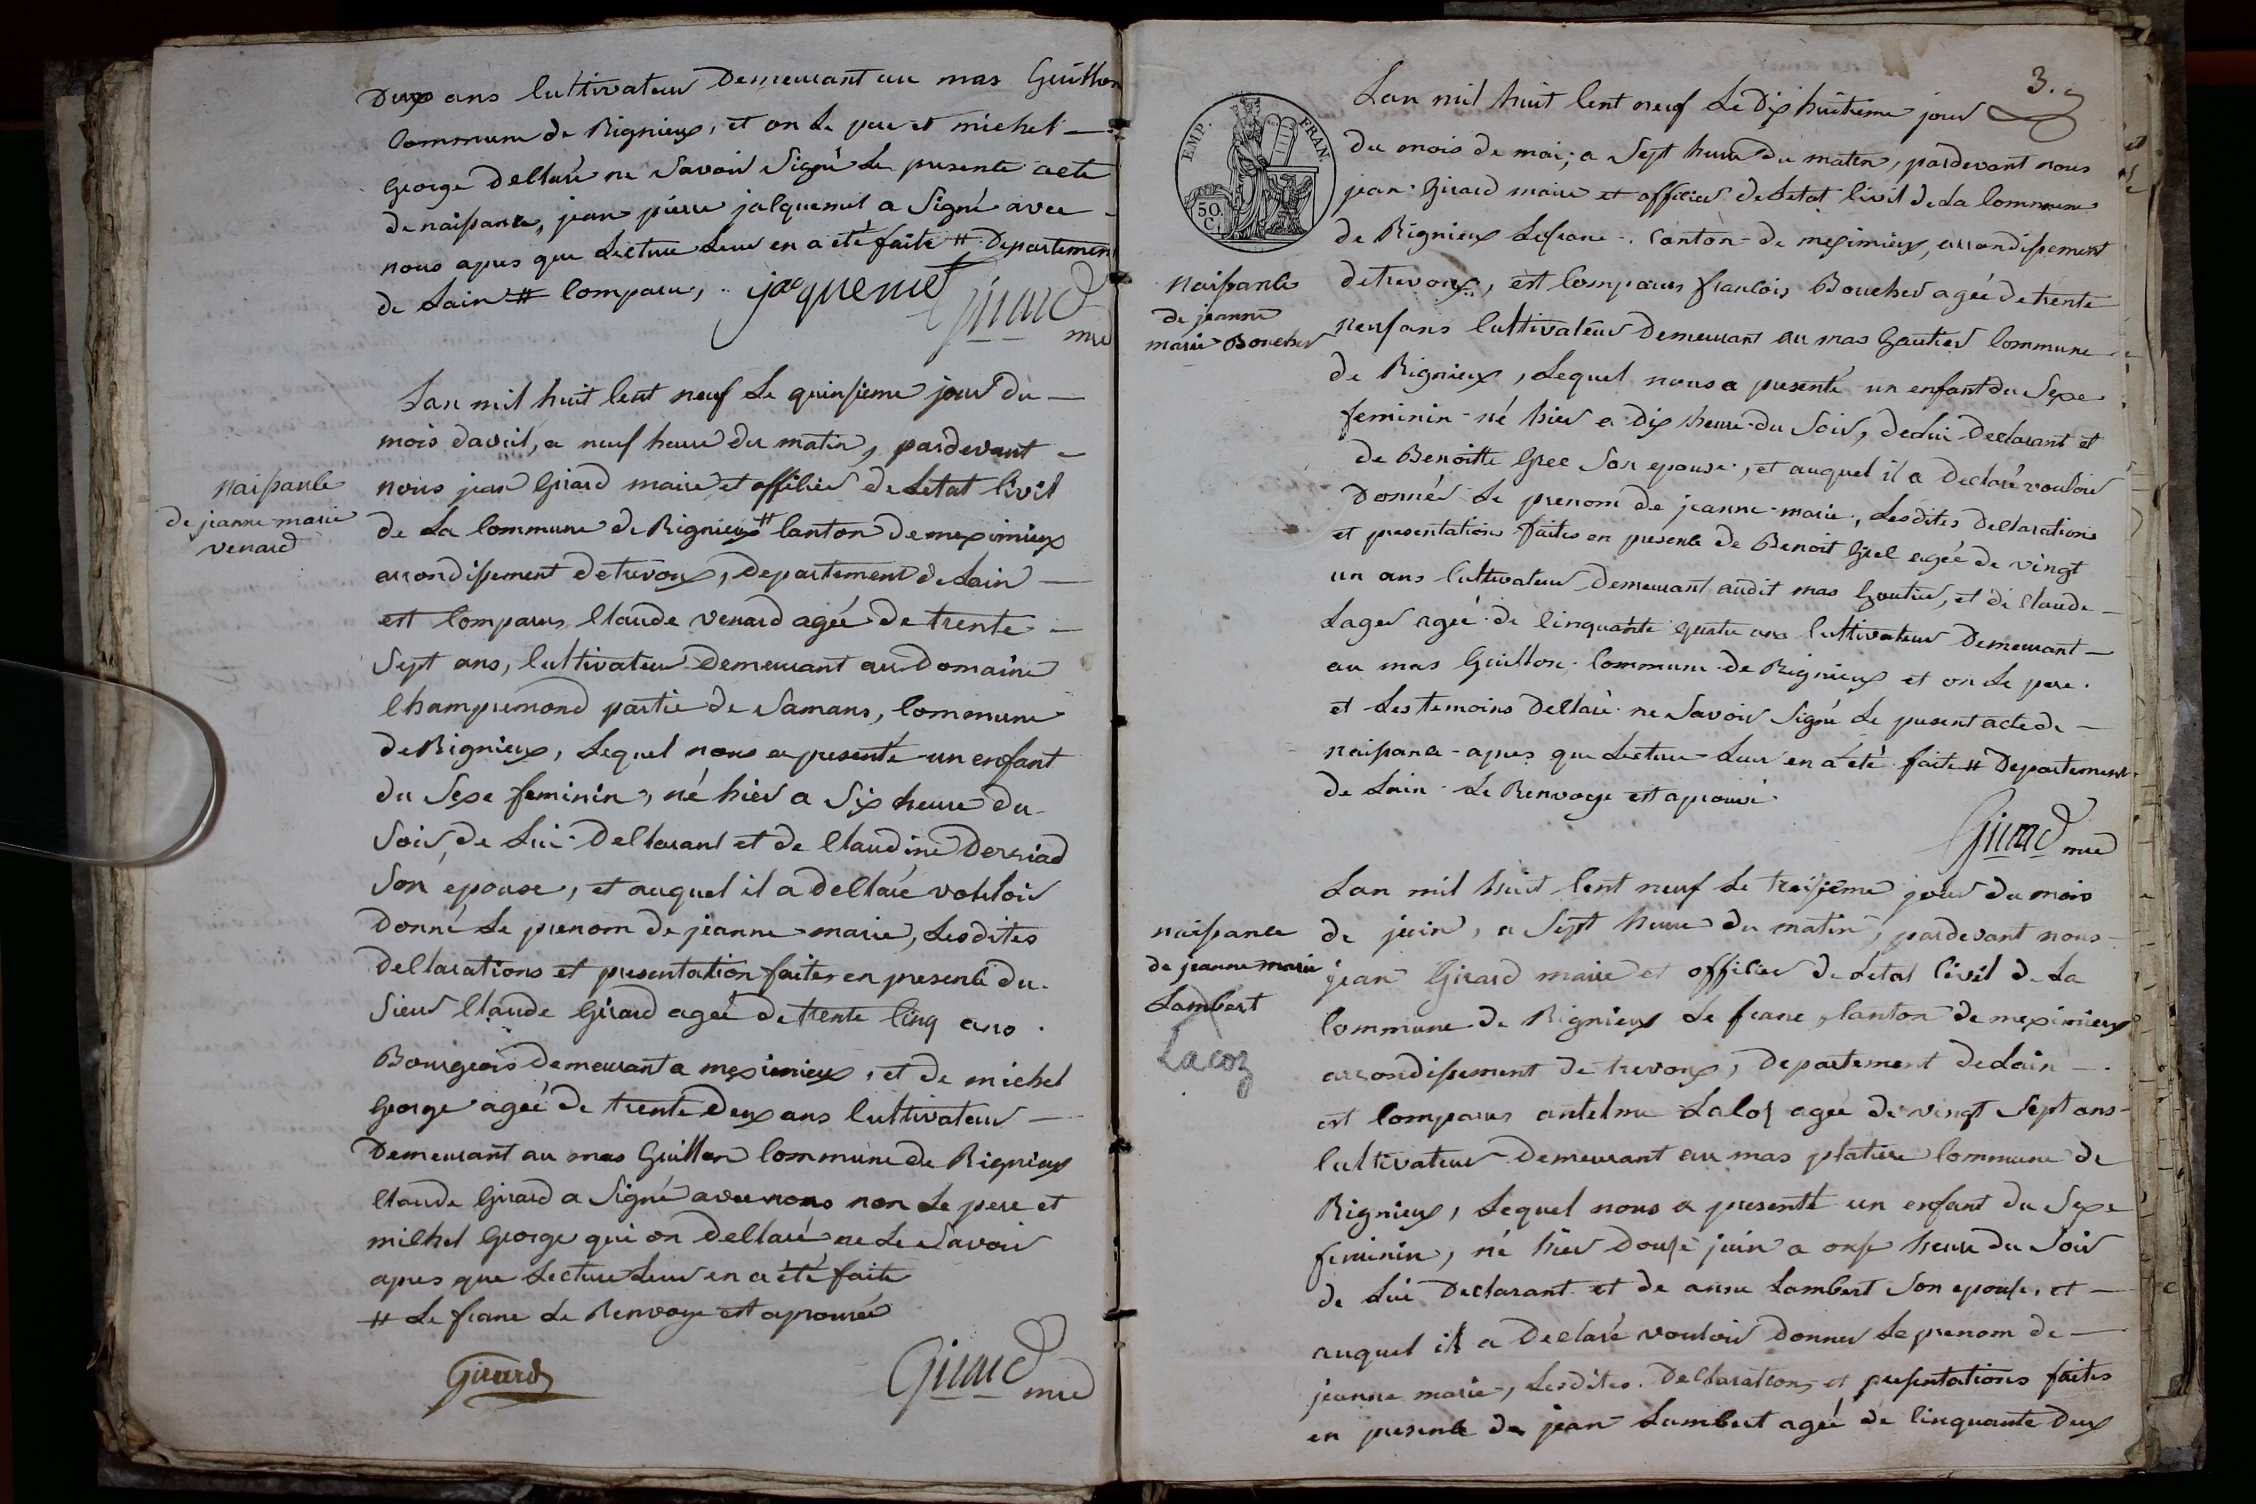 Deux ans Cultivateur Demeurant au mas Guillon
Commune de Rignieux, et on Le pere et michel
george Dellaré ne Savoir Signé Le presente acte
de naissance, jean pierre jalquemet a Signé avec
nous apres que Lecture Leur en a été faite # Departement
de Lain # Comparu,
jacquemet Girard
mre
Lan mil huit Cent neuf Le quinsieme jour du
mois davril, a neuf heure du matin, pardevant
nous jean Girard maire et officier de Letat Civil
de La Commune de Rignieux # Canton de meximieux
arrondissement de trevoux, Departement de Lain
est Comparus Claude venard agée de trente
Sept ans, Cultivateur Demeurant au Domaine
Champremond partie de Samans, Commune
de Rignieux, Lequel nous a presenté un enfant
du Sexe feminin, né hier a Six heure du
Soir, de Lui Dellarant et de Claudine Derriad
Son epouse, et auquel il a Dellaré vouloir
Donné Le prenom de jeanne marie, Lesdites
Dellarations et presentation faites en presence du
Sieur Claude Girard agée de trente Cinq ans
Bourgeois demeurant a meximieux, et de michel
George agée de trente Deux ans Cultivateur
Demeurant au mas Guillon Commune de Rignieux
Claude Girard a Signé avec nous non Le pere et
michel George qui on Dellaré ne Le Savoir
apres que Lecture Leur en a été faite
# Le franc Le Renvoye est aprouvée
Girard
Girard mre
naissance
de jeanne marie
venard
3.
Lan mil huit Cent neuf Le Dix huitieme jour
du mois de mai, a Sept heure du matin, pardevant nous
jean Girard maire et officier de Letat Civil de La Commune
de Rignieux Lefranc, Canton de meximieux, arrondissement
de trevoux, est Comparus francois Boucher agée de trente
neuf ans Cultivateur Demeurant au mas Gautier Commune
de Rignieux, Lequel nous a presenté un enfant du Sexe
feminin né hier a Dix heure du Soir, de Lui Declarant et
de Benoitte Grec Son epouse, et auquel il a Declaré vouloir
Donner Le prenom de jeanne marie, Lesdites Dellarations
et presentations faites en presence de Benoit Grel agée de vingt
un ans Cultivateur Demeurant audit mas Goutier, et de Claude
Lager agée de Cinquante quatre ans Cultivateur Demeurant
au mas Guillon Commune de Rignieux et on Le pere
et Les temoins Dellaré ne Savoir Signé Le present acte de
naissance apres que Lecture Leur en a été faite # Departement
de Lain Le Renvoye est aprouvé
Girard mre
EMP. FRAN.
50.
C.
naissance
de jeanne
marie Boucher
Lan mil huit Cent neuf Le treisieme jour du mois
de juin, a Sept heure du matin, pardevant nous
jean Girard maire et officier de Letat Civil de La
Commune de Rignieux Le franc, Canton de meximieux
arrondissement de trevoux, Departement de Lain
est Comparus antelme Lalos agée de vingt Sept ans
Cultivateur Demeurant au mas platiere Commune de
Rignieux, Lequel nous a presenté un enfant du Sexe
feminin, né hier Douse juin a onse heure du Soir
de Lui Declarant et de anne Lambert Son epouse, et
auquel il a Declaré vouloir Donner Le prenom de
jeanne marie, Lesdites Dellarations et presentations faites
en presence de jean Lambert agée de Cinquante Deux
naissance
de jeanne marie
Lambert
Lacoz